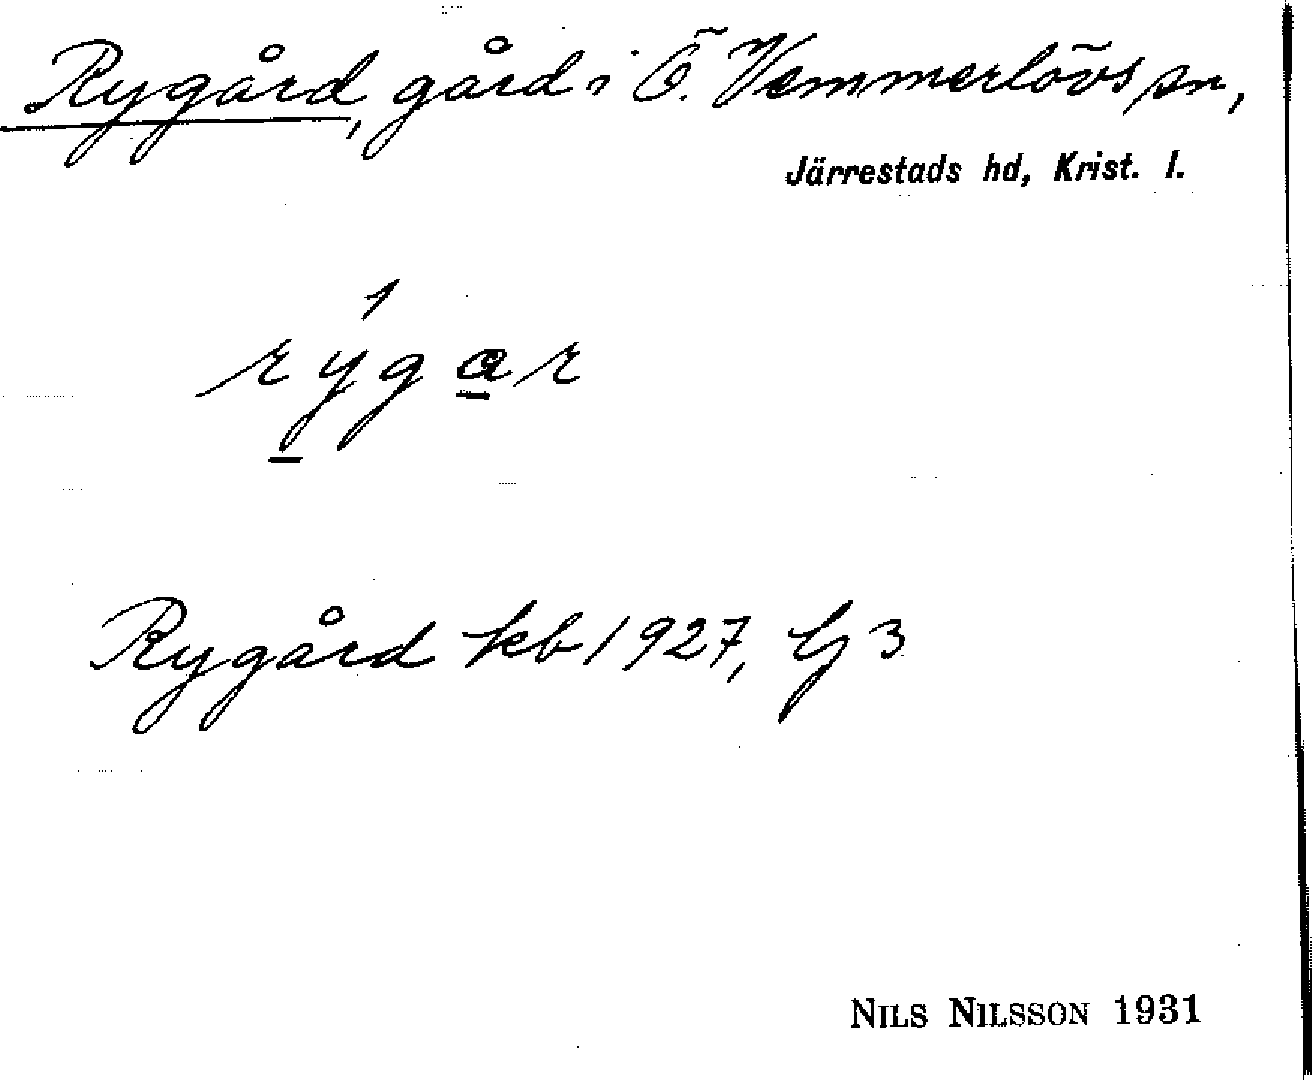 Rygård, gård i Ö. Vemmerlövs sn,
Järrestads hd, Krist. l.
rýgar
Rygård kb 1927, G 3
NILS NILSSON 1931